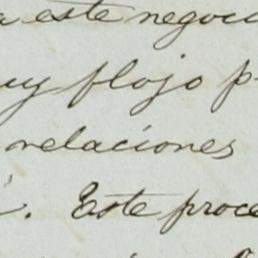 a este negoci
uy flojo p
relaciones
. Este proce